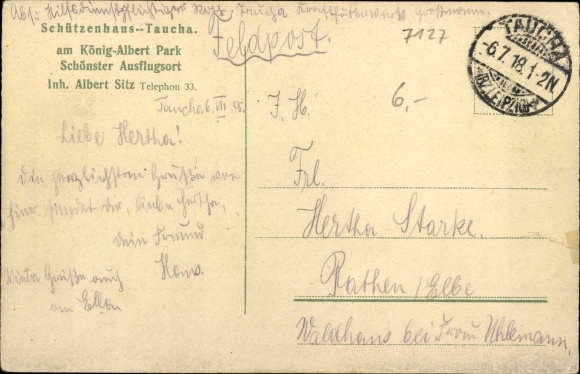 Abs: Hilfsdienstpflichtiger Taucha
Schützenhaus--Taucha.
am König-Albert Park
Schönster Ausflugsort
Inh. Albert Sitz Telephon 33.
Feldpost.
7127
TAUCHA
-6.7.18.1-2N.
(BZ. LEIPZIG)
6,-
Taucha, 6. VII. 18.
Liebe Hertha!
Die herzlichsten Grüße von
hier sendet dir, liebe Hertha,
dein Freund
Grüße auch
an Ella.
Frl.
Hertha Starke.
Rathen / Elbe
Waldhaus bei Frau Uhlemann.